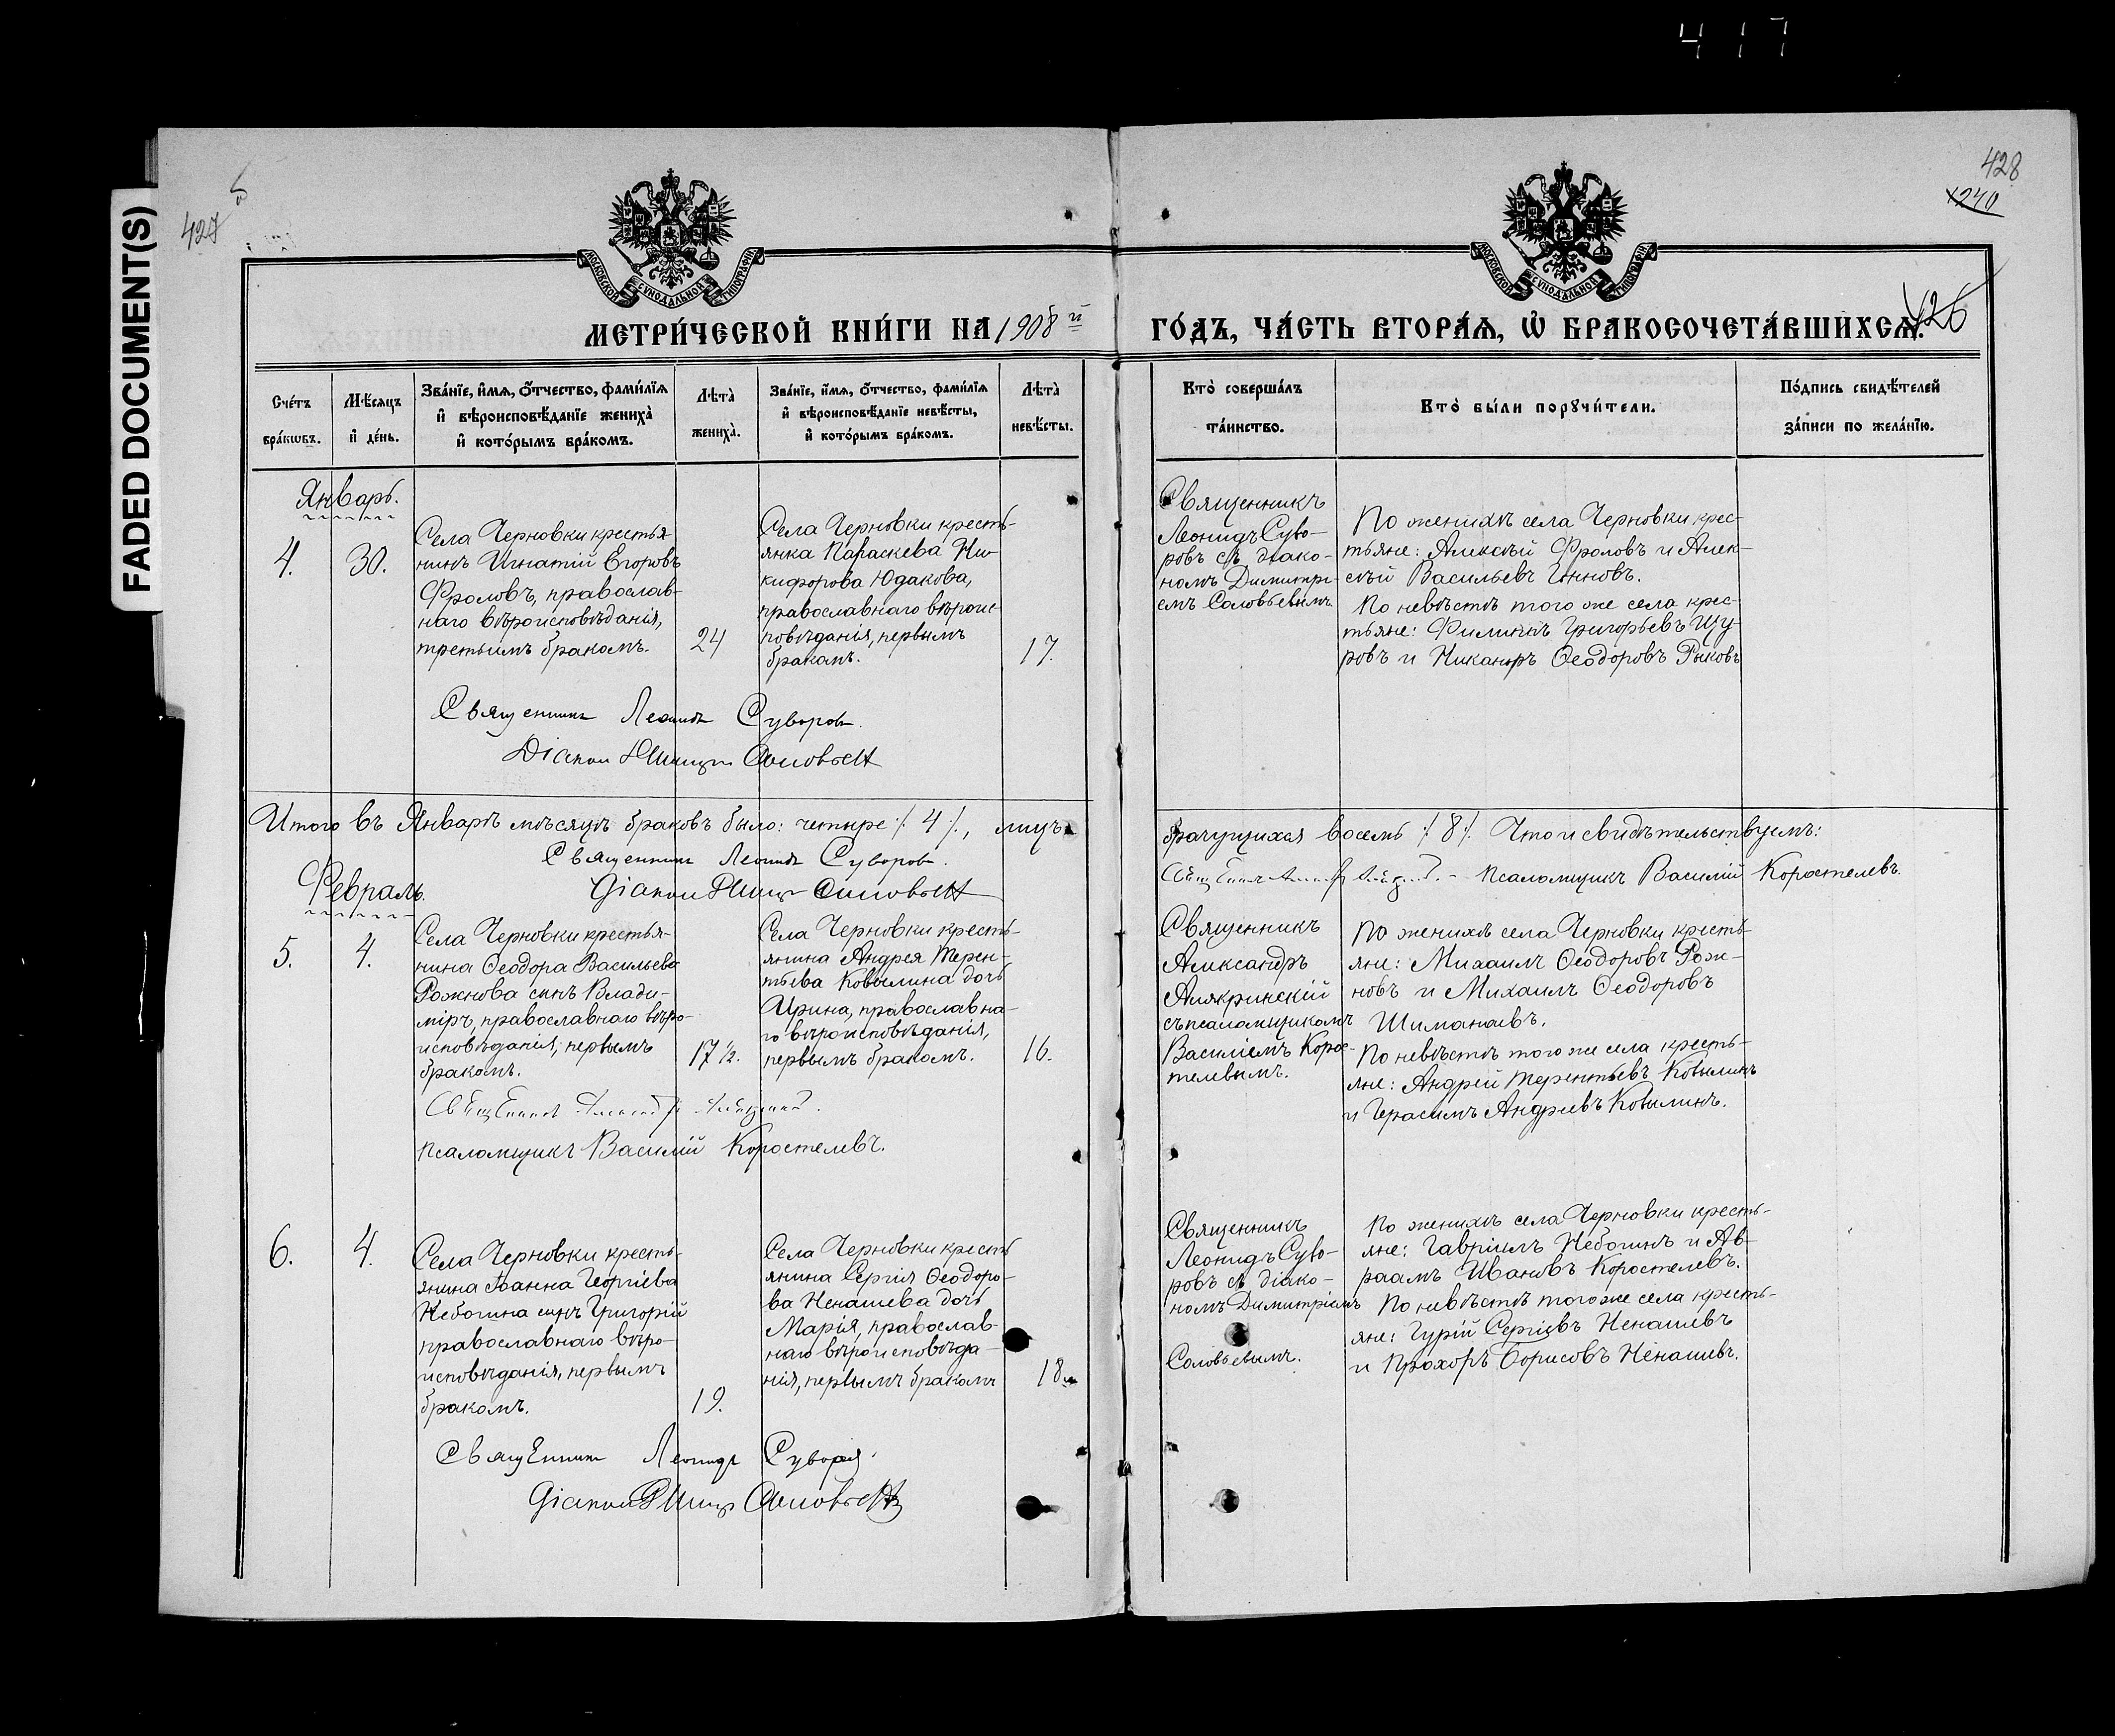 417
FADED DOCUMENT(S)
427
428
240
426
МОСКОВСКОЙ СУНОДАЛЬНОЙ ТИПОГРАФІИ
МОСКОВСКОЙ СУНОДАЛЬНОЙ ТИПОГРАФІИ
МЕТРИ́ЧЕСКОЙ КНИ́ГИ НА 1908 й ГО́ДЪ, ЧА́СТЬ ВТОРА́Я, Ѡ БРАКОСОЧЕТА́ВШИХСЯ.
Сче́тъ бра́кѡвъ.
Мѣ́сяцъ и де́нь.
Зва́нїе, и́мя, о́тчество, фами́лїя и вѣроисповѣ́данїе жениха̀ и кото́рымъ бра́комъ.
Лѣта̀ жениха̀.
Зва́нїе, и́мя, о́тчество, фами́лїя и вѣроисповѣ́данїе невѣ́сты, и кото́рымъ бра́комъ.
Лѣта̀ невѣ́сты.
Кто̀ соверша́лъ та́инство.
Кто̀ бы́ли порꙋчи́тели.
По́дпись свидѣ́телей за́писи по жела́нїю.
Январь.
4.
30.
Села Черновки крестья
нинъ Игнатій Егоровъ
Фроловъ, православ-
наго вѣроисповѣданія,
третьимъ бракомъ.
24
Села Черновки кресть-
янка Параскева Ни-
кифорова Юдакова,
православнаго вѣроис-
повѣданія, первымъ
бракомъ.
17.
Священникъ
Леонидъ Суво-
ровъ съ діако-
номъ Димитрі-
емъ Соловьевымъ.
По женихѣ села Черновки крес-
тьяне: Алексѣй Фроловъ и Алек-
сѣй Васильевъ
По невѣстѣ того же села крес-
тьяне: Филиппъ Григорьевъ Щу-
ровъ и Никаноръ Ѳеодоровъ Рыковъ
Священникъ Леонидъ Суворовъ.
Діаконъ Димитрій Соловьевъ
Итого въ Январѣ мѣсяцѣ браковъ было: четыре /. 4 /., лицъ
брачущихся восемь /. 8 /. Что и свидѣтельствуемъ:
Священникъ Леонидъ Суворовъ.
Псаломщикъ Василій Коростелевъ.
Діаконъ Димитрій Соловьевъ
Февраль.
5.
4.
Села Черновки крестья-
нина Ѳеодора Васильева
Рожнова сынъ Влади-
міръ, православнаго вѣро-
исповѣданія, первымъ
бракомъ.
17 ½.
Села Черновки кресть-
янина Андрея Терен-
тьева Ковылина дочь
Ирина, православна-
го вѣроисповѣданія,
первымъ бракомъ.
16.
Священникъ
Александръ
Алякринскій
съ псаломщикомъ
Василіемъ Корос-
телевымъ.
По женихѣ села Черновки кресть-
яне: Михаилъ Ѳеодоровъ Рож-
новъ и Михаилъ Ѳеодоровъ
Шиманаевъ.
По невѣстѣ того же села кресть-
яне: Андрей Терентьевъ Ковылинъ
и Герасимъ Андреевъ Ковылинъ.
Псаломщикъ Василій Коростелевъ.
6.
4.
Села Черновки кресть-
янина Іоанна Георгіева
Небогина сынъ Григорій
православнаго вѣро-
исповѣданія, первымъ
бракомъ.
19.
Села Черновки кресть
янина Сергія Ѳеодоро-
ва Ненашева дочь
Марія, православ-
наго вѣроисповѣда-
нія, первымъ бракомъ
18.
Священникъ
Леонидъ Суво-
ровъ съ діако-
номъ Димитріемъ
Соловьевымъ.
По женихѣ села Черновки кресть-
яне: Гавріилъ Небогинъ и Ав-
раамъ Ивановъ Коростелевъ.
По невѣстѣ того же села кресть-
яне: Гурій Сергіевъ Ненашевъ
и Прохоръ Борисовъ Ненашевъ.
Священникъ Леонидъ Суворовъ.
Діаконъ Димитрій Соловьевъ